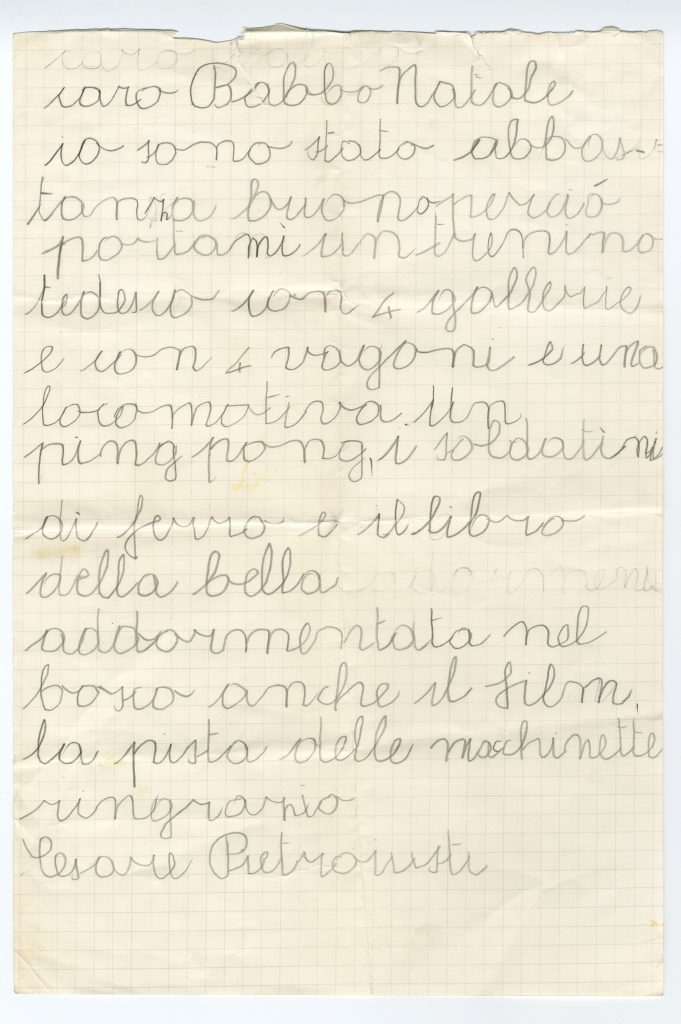 caro
caro Babbo Natale
io sono stato abbas-
tanza buono perció
portami un trenino
tedesco con 4 gallerie
e con 4 vagoni e una
locomotiva un
ping pong, i soldatini
di ferro e il libro
della bella addormen
addormentata nel
bosco anche il film,
la pista delle macchinette
ringrazio
Cesare Pietroiusti